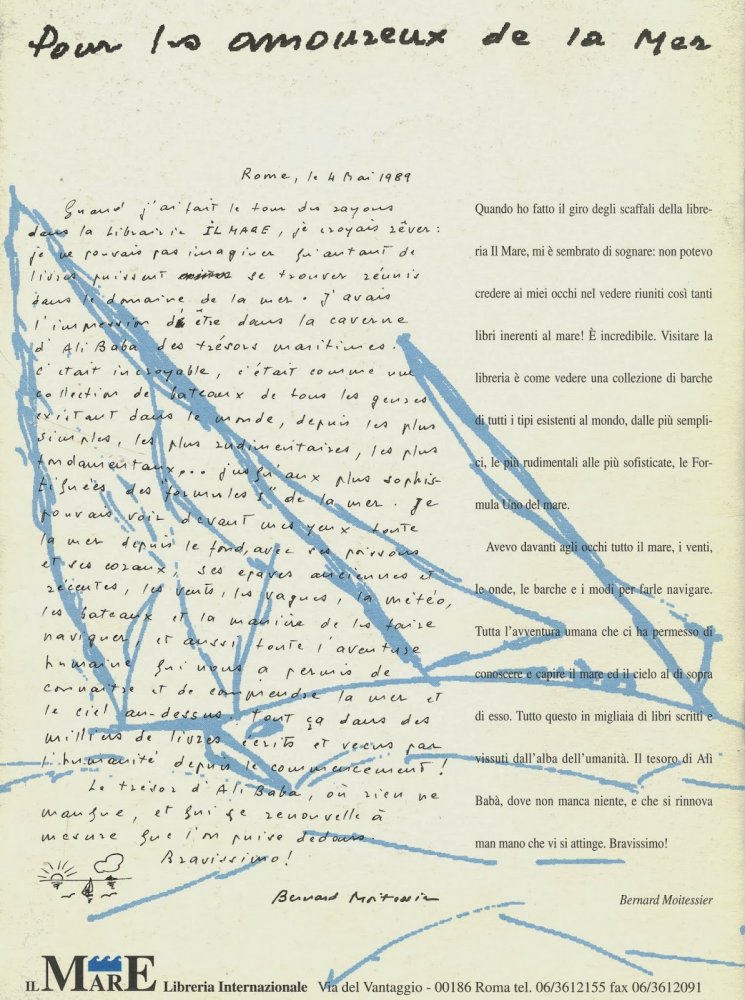 Pour les amoureux de la Mer
Rome, le 4 Mai 1989
Quand j'ai fait le tour des rayons
dans la Librairie IL MARE, je croyais rêver :
je ne pouvais pas imaginer qu'autant de
livres puissent se trouver réunis
dans le domaine de la mer. J'avais
l'impression d'être dans la caverne
d'Ali Baba des trésors maritimes.
C'était incroyable, c'était comme une
collection de bateaux de tous les genres
existant dans le monde, depuis les plus
simples, les plus rudimentaires, les plus
fondamentaux... jusqu'aux plus sophis-
tiquées des "formules 1" de la mer. Je
pouvais voir devant mes yeux toute
la mer depuis le fond, avec ses poissons
et ses coraux, ses épaves anciennes et
récentes, les vents, les vagues, la météo,
les bateaux et la manière de les faire
naviguer, et aussi toute l'aventure
humaine qui nous a permis de
connaître et de comprendre la mer et
le ciel au-dessus. Tout ça dans des
milliers de livres écrits et vécus par
l'humanité depuis le commencement !
Le trésor d'Ali Baba, où rien ne
manque, et qui se renouvelle à
mesure que l'on puise dedans.
Bravissimo !
Bernard Moitessier
Quando ho fatto il giro degli scaffali della libre-
ria Il Mare, mi è sembrato di sognare: non potevo
credere ai miei occhi nel vedere riuniti così tanti
libri inerenti al mare! È incredibile. Visitare la
libreria è come vedere una collezione di barche
di tutti i tipi esistenti al mondo, dalle più sempli-
ci, le più rudimentali alle più sofisticate, le For-
mula Uno del mare.
Avevo davanti agli occhi tutto il mare, i venti,
le onde, le barche e i modi per farle navigare.
Tutta l'avventura umana che ci ha permesso di
conoscere e capire il mare ed il cielo al di sopra
di esso. Tutto questo in migliaia di libri scritti e
vissuti dall'alba dell'umanità. Il tesoro di Alì
Babà, dove non manca niente, e che si rinnova
man mano che vi si attinge. Bravissimo!
Bernard Moitessier
IL MARE Libreria Internazionale Via del Vantaggio - 00186 Roma tel. 06/3612155 fax 06/3612091